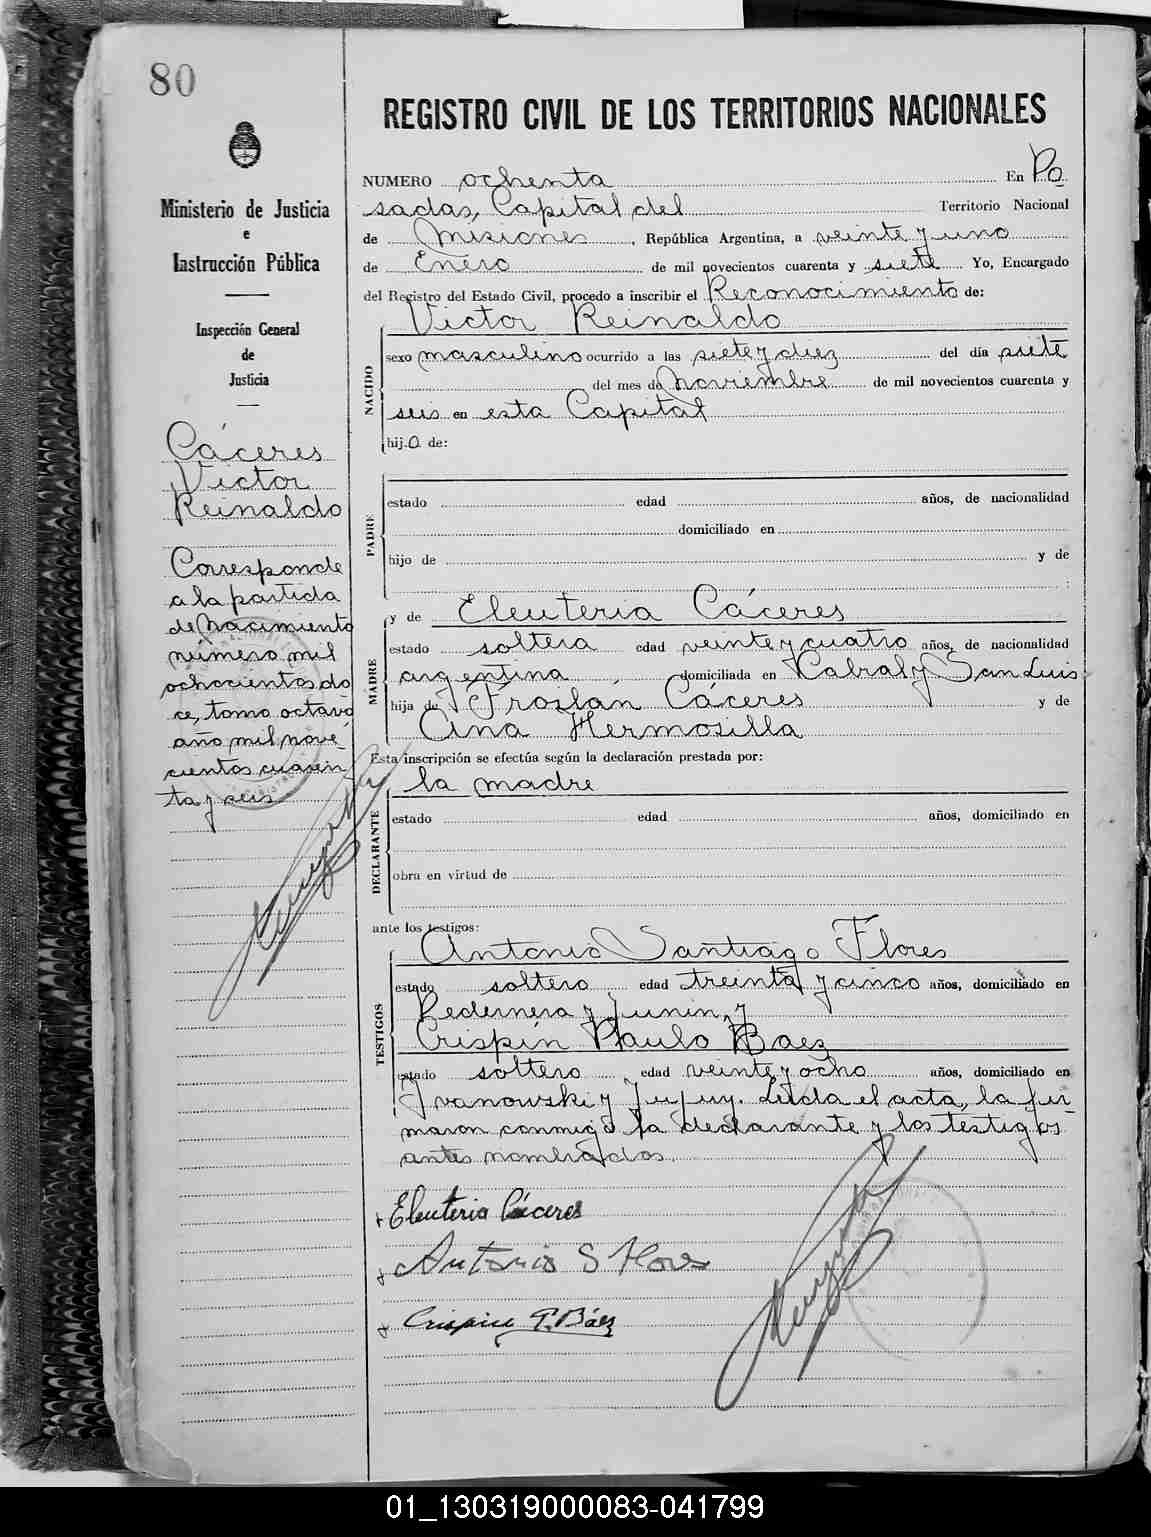 80
Ministerio de Justicia
e
Instrucción Pública
Inspección General
de
Justicia
Cáceres
Victor
Reinaldo
Corresponde
a la partida
de Nacimiento
número mil
ochocientos do
ce, tomo octavo
año mil nove-
cientos cuaren
ta y seis
REGISTRO CIVIL DE LOS TERRITORIOS NACIONALES
NUMERO ochenta En Po
sadas, Capital del Territorio Nacional
de Misiones, República Argentina, a veinte y uno
de Enero de mil novecientos cuarenta y siete Yo, Encargado
del Registro del Estado Civil, procedo a inscribir el Reconocimiento de:
Victor Reinaldo
NACIDO
sexo masculino ocurrido a las siete y diez del día siete
del mes de Noviembre de mil novecientos cuarenta y
seis en esta Capital
hijo de:
PADRE
estado edad años, de nacionalidad
domiciliado en
hijo de y de
:
y de Eleuteria Cáceres
MADRE
estado soltera edad veinte y cuatro años, de nacionalidad
argentina domiciliada en Cabral y San Luis
hija de Froilán Cáceres y de
Ana Hermosilla
Esta inscripción se efectúa según la declaración prestada por:
la madre
DECLARANTE
estado edad años, domiciliado en
obra en virtud de
ante los testigos:
Antonio Santiago Flores
TESTIGOS
estado soltero edad treinta y cinco años, domiciliado en
Pedernera y Junin, y
Crispín Paulo Baez
estado soltero edad veinte y ocho años, domiciliado en
Ivanowski y Jujuy. Leida el acta, la fir-
maron conmigo la declarante y los testigos
antes nombrados.
Eleuteria Cáceres
Antonio S Flores
Crispin P. Báez
01_130319000083-041799